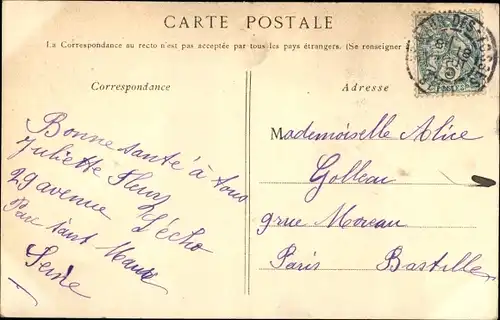 CARTE POSTALE
La Correspondance au recto n'est pas acceptée par tous les pays étrangers. (Se renseigner
Correspondance
Adresse
Bonne santé à tous
Juliette Fleury
29 avenue L'écho
Parc saint Maur
Seine
Mademoiselle Alice
Golleau
9 rue Moreau
Paris Bastille